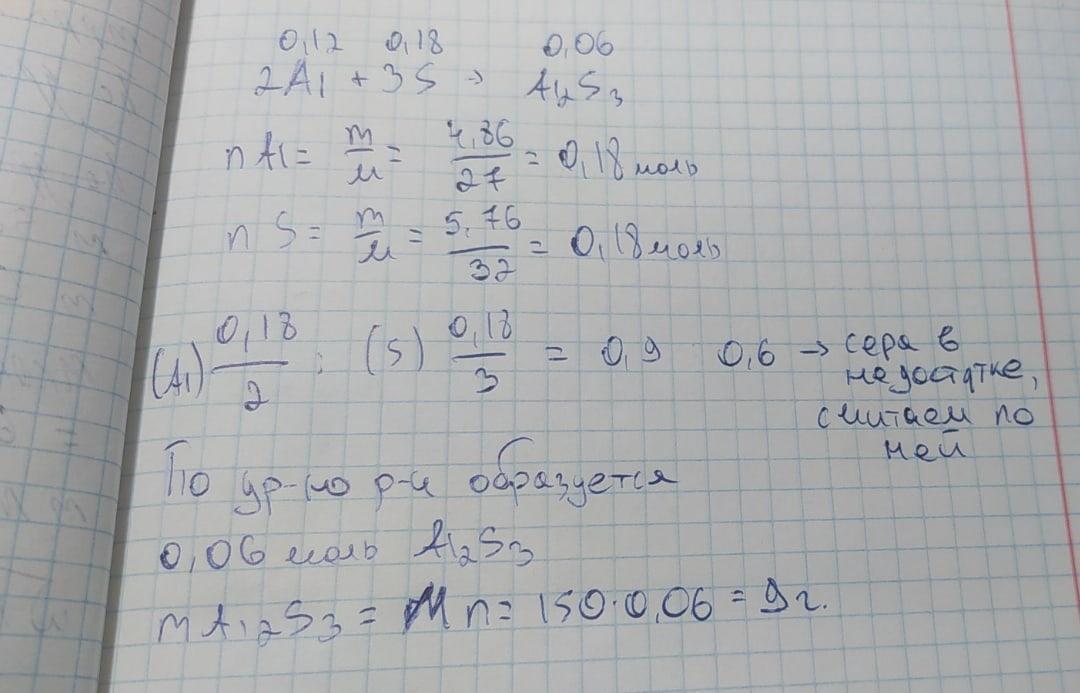 0,12 0,18 0,06
2Al + 3S → Al2S3
n Al = m/M = 4,86/27 = 0,18 моль
n S = m/M = 5,76/32 = 0,18 моль
(Al) 0,18/2 : (S) 0,18/3 = 0,9 0,6 → сера в
недостатке,
считаем по
ней
По ур-ию р-и образуется
0,06 моль Al2S3
m Al2S3 = M n = 150·0,06 = 9г.